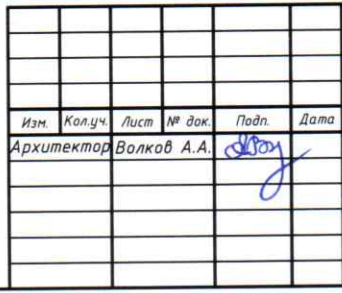 Изм. Кол.уч. Лист № док. Подп. Дата
Архитектор Волков А.А.